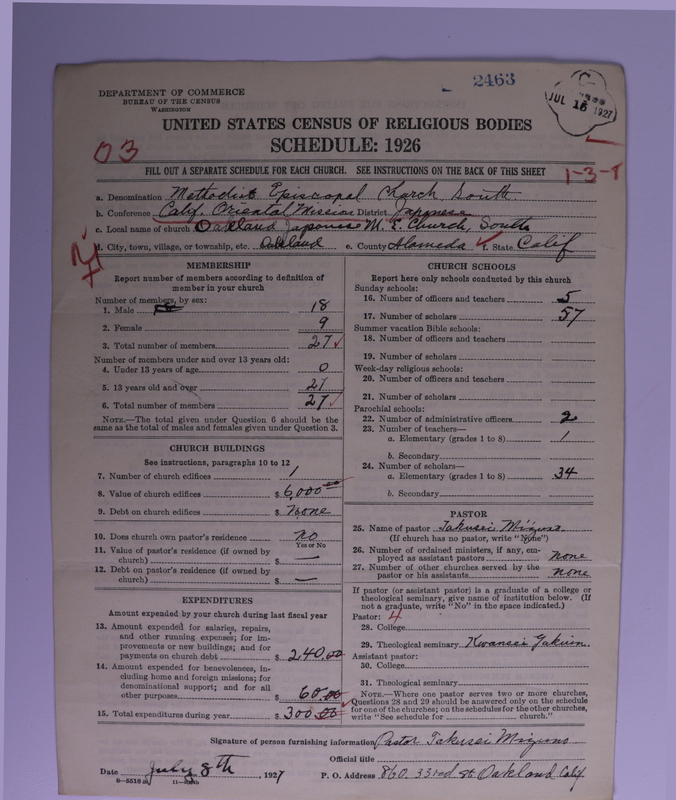 2463
DEPARTMENT OF COMMERCE
BUREAU OF THE CENSUS
WASHINGTON
JUL 16 1927
UNITED STATES CENSUS OF RELIGIOUS BODIES
SCHEDULE: 1926
03
FILL OUT A SEPARATE SCHEDULE FOR EACH CHURCH. SEE INSTRUCTIONS ON THE BACK OF THIS SHEET
1-3-8
a. Denomination Methodist Episcopal Church, South
b. Conference Calif. Oriental Mission District Japanese
c. Local name of church Oakland Japanese M. E. Church, South
d. City, town, village, or township, etc. Oakland e. County Alameda f. State Calif
MEMBERSHIP
Report number of members according to definition of
member in your church
Number of members, by sex:
1. Male 18
2. Female 9
3. Total number of members 27
Number of members under and over 13 years old:
4. Under 13 years of age 0
5. 13 years old and over 27
6. Total number of members 27
NOTE.—The total given under Question 6 should be the
same as the total of males and females given under Question 3.
CHURCH BUILDINGS
See instructions, paragraphs 10 to 12
7. Number of church edifices 1
8. Value of church edifices $ 6,000 00
9. Debt on church edifices $ None
10. Does church own pastor's residence No
Yes or No
11. Value of pastor's residence (if owned by
church) $ —
12. Debt on pastor's residence (if owned by
church) $ —
EXPENDITURES
Amount expended by your church during last fiscal year
13. Amount expended for salaries, repairs,
and other running expenses; for im-
provements or new buildings; and for
payments on church debt $ 240.00
14. Amount expended for benevolences, in-
cluding home and foreign missions; for
denominational support; and for all
other purposes $ 60.00
15. Total expenditures during year $ 300.00
CHURCH SCHOOLS
Report here only schools conducted by this church
Sunday schools:
16. Number of officers and teachers 5
17. Number of scholars 57
Summer vacation Bible schools:
18. Number of officers and teachers
19. Number of scholars
Week-day religious schools:
20. Number of officers and teachers
21. Number of scholars
Parochial schools:
22. Number of administrative officers 2
23. Number of teachers—
a. Elementary (grades 1 to 8) 1
b. Secondary
24. Number of scholars—
a. Elementary (grades 1 to 8) 34
b. Secondary
PASTOR
25. Name of pastor Takusei Mizuno
(If church has no pastor, write "None")
26. Number of ordained ministers, if any, em-
ployed as assistant pastors None
27. Number of other churches served by the
pastor or his assistants none
If pastor (or assistant pastor) is a graduate of a college or
theological seminary, give name of institution below. (If
not a graduate, write "No" in the space indicated.)
Pastor: 4
28. College
29. Theological seminary Kwansei Gakuin
Assistant pastor:
30. College
31. Theological seminary
NOTE.—Where one pastor serves two or more churches,
Questions 28 and 29 should be answered only on the schedule
for one of the churches; on the schedules for the other churches,
write "See schedule for church."
Signature of person furnishing information Pastor Takusei Mizuno
Official title
Date July 8th, 1927 P. O. Address 860. 33rd st. Oakland Calif.
8-5516